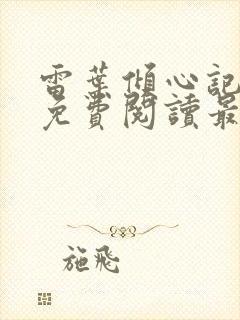 雷葉傾心記
免費閱讀最
施飛